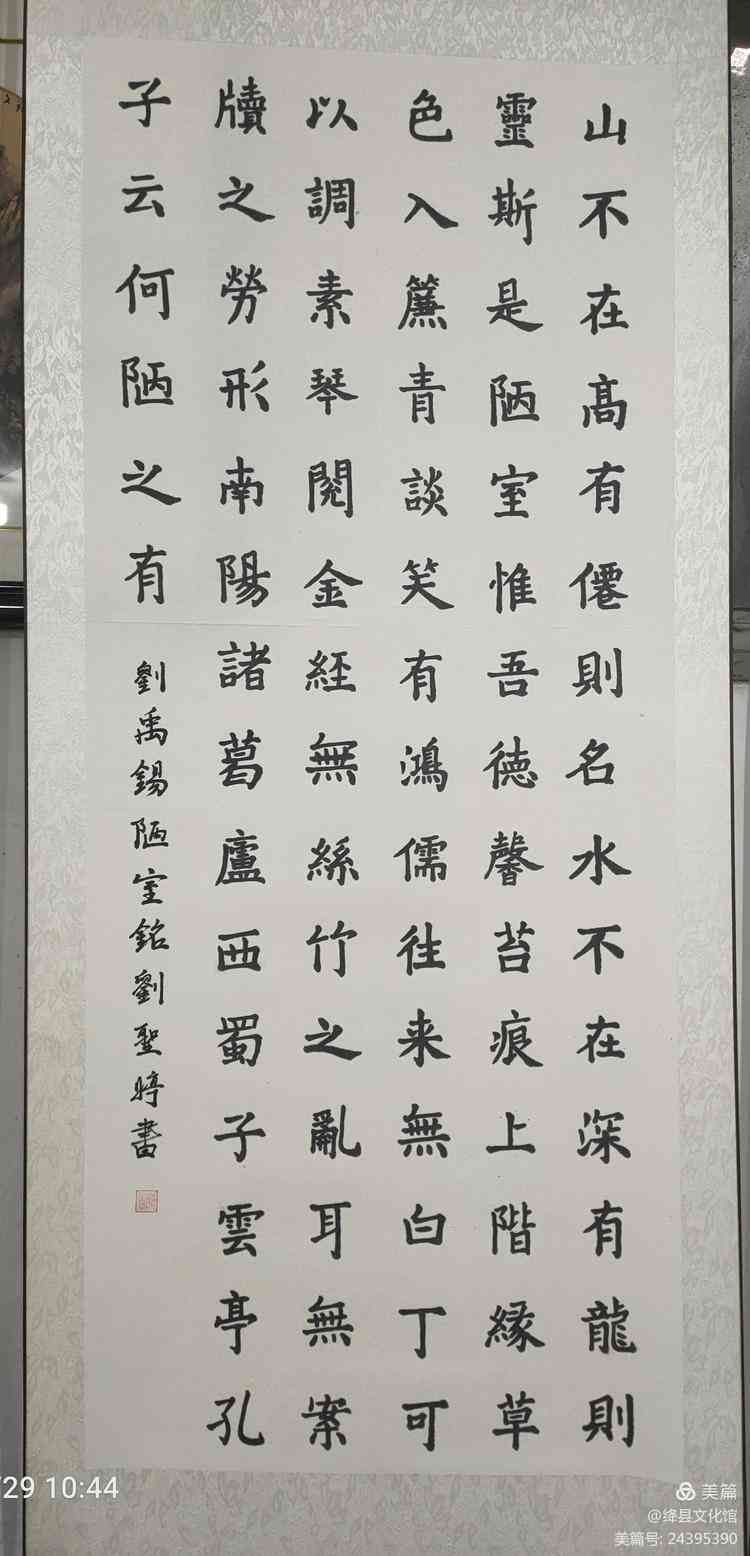 山不在高有僊則名水不在深有龍則
靈斯是陋室惟吾德馨苔痕上階緣草
色入簾青談笑有鴻儒往来無白丁可
以調素琴閱金経無絲竹之亂耳無案
牘之勞形南陽諸葛廬西蜀子雲亭孔
子云何陋之有
劉禹錫陋室銘劉聖婷書
/29 10:44
美篇
@绛县文化馆
美篇号: 24395390